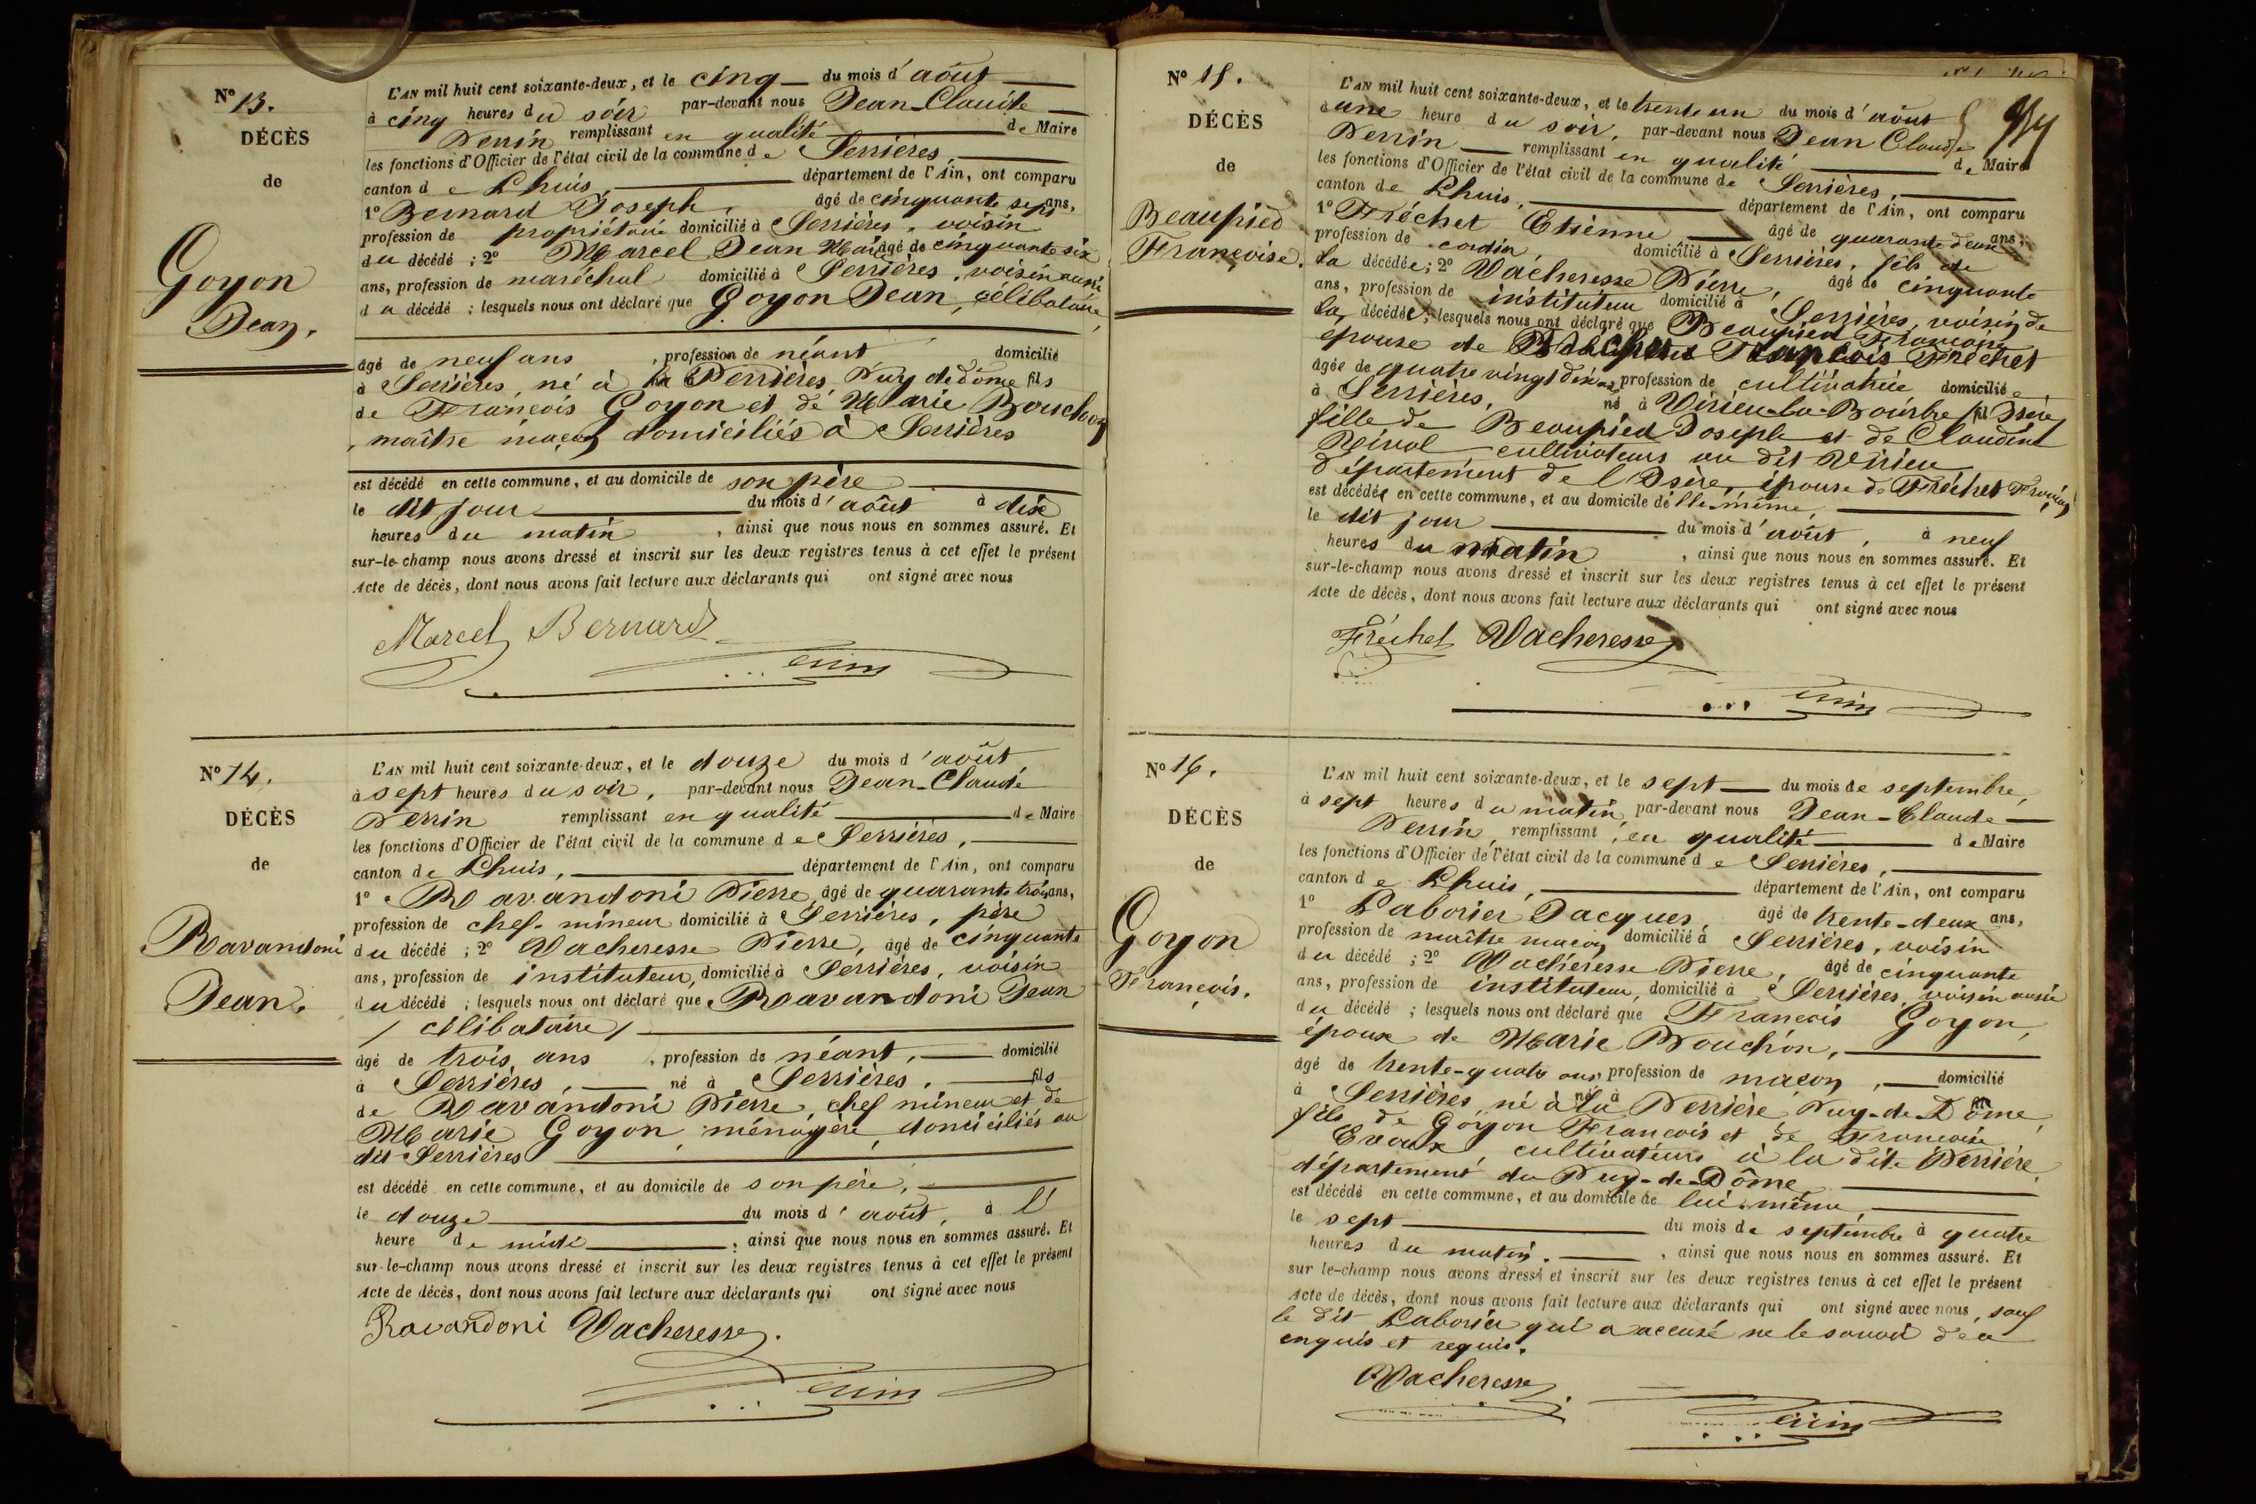 N° 13.
DÉCÈS
de
Goyon
Jean.
L'AN mil huit cent soixante-deux, et le cinq du mois d'août
à cinq heures du soir par-devant nous Jean-Claude
Perrin remplissant en qualité de Maire
les fonctions d'Officier de l'état civil de la commune de Serrières,
canton de Lhuis, département de l'Ain, ont comparu
1° Bernard Joseph, âgé de cinquante sept ans,
profession de propriétaire domicilié à Serrières, voisin
du décédé ; 2° Marcel Jean Marie âgé de cinquante six
ans, profession de maréchal domicilié à Serrières, voisin aussi
du décédé ; lesquels nous ont déclaré que Goyon Jean, célibataire,
âgé de neuf ans , profession de néant, domicilié
à Serrières, né à la Perrières Puy de dôme fils
de François Goyon et de Marie Bouchon
, maître maçon domiciliés à Serrières
est décédé en cette commune, et au domicile de son père
le dit jour du mois d'août à dix
heures du matin , ainsi que nous nous en sommes assuré. Et
sur-le-champ nous avons dressé et inscrit sur les deux registres tenus à cet effet le présent
Acte de décès, dont nous avons fait lecture aux déclarants qui ont signé avec nous
Marcel Bernard
Perrin
N° 14.
DÉCÈS
de
Ravandoni
Jean.
L'AN mil huit cent soixante-deux, et le douze du mois d'août
à sept heures du soir, par-devant nous Jean-Claude
Perrin remplissant en qualité de Maire
les fonctions d'Officier de l'état civil de la commune de Serrières,
canton de Lhuis, département de l'Ain, ont comparu
1° Ravandoni Pierre, âgé de quarante trois ans,
profession de chef-mineur domicilié à Serrières, père
du décédé ; 2° Vacheresse Pierre, âgé de cinquante
ans, profession de instituteur, domicilié à Serrières, voisin
du décédé ; lesquels nous ont déclaré que Ravandoni Jean
/ célibataire /
âgé de trois ans , profession de néant, domicilié
à Serrières, né à Serrières, fils
de Ravandoni Pierre, chef mineur et de
Marie Goyon, ménagère, domiciliés au
dit Serrières
est décédé en cette commune, et au domicile de son père,
le douze du mois d'août, à l'
heure de midi , ainsi que nous nous en sommes assuré. Et
sur-le-champ nous avons dressé et inscrit sur les deux registres tenus à cet effet le présent
Acte de décès, dont nous avons fait lecture aux déclarants qui ont signé avec nous
Ravandoni Vacheresse.
Perrin
N° 15.
DÉCÈS
de
Beaupied
Françoise.
L'AN mil huit cent soixante-deux, et le trente un du mois d'août
à une heure du soir, par-devant nous Jean Claude
Perrin remplissant en qualité de Maire
les fonctions d'Officier de l'état civil de la commune de Serrières,
canton de Lhuis, département de l'Ain, ont comparu
1° Fréchet Etienne âgé de quarante deux ans,
profession de domicilié à Serrières, fils de
la décédée ; 2° Vacheresse Pierre, âgé de cinquante
ans, profession de instituteur domicilié à Serrières, voisin de
la décédée, lesquels nous ont déclaré que Beaupied Françoise
épouse de François Fréchet
âgée de quatre vingt dix ans profession de cultivatrice domiciliée
à Serrières, né à Virieu-la-Bourbe fil Isère
fille de Beaupied Joseph et de Claudine
cultivateurs au dit Virieu
département de l'Isère, épouse de Fréchet François
est décédée en cette commune, et au domicile d'elle-même,
le dit jour du mois d'août, à neuf
heures du matin , ainsi que nous nous en sommes assuré. Et
sur-le-champ nous avons dressé et inscrit sur les deux registres tenus à cet effet le présent
Acte de décès, dont nous avons fait lecture aux déclarants qui ont signé avec nous
Fréchet Vacheresse
Perrin
N° 16.
DÉCÈS
de
Goyon
François.
L'AN mil huit cent soixante-deux, et le sept du mois de septembre,
à sept heures du matin, par-devant nous Jean-Claude
Perrin, remplissant en qualité de Maire
les fonctions d'Officier de l'état civil de la commune de Serrières,
canton de Lhuis, département de l'Ain, ont comparu
1° Laborier Jacques, âgé de trente-deux ans,
profession de maître maçon domicilié à Serrières, voisin
du décédé ; 2° Vacheresse Pierre, âgé de cinquante
ans, profession de instituteur, domicilié à Serrières, voisin aussi
du décédé ; lesquels nous ont déclaré que François Goyon,
époux de Marie Bouchon,
âgé de trente-quatre ans, profession de maçon, domicilié
à Serrières, né à la Perrière, Puy-de-Dôme,
fils de Goyon François et de Françoise
Evaux, cultivateurs à la dite Perrière
département du Puy-de-Dôme
est décédé en cette commune, et au domicile de lui-même,
le sept du mois de septembre à quatre
heures du matin. , ainsi que nous nous en sommes assuré. Et
sur le-champ nous avons dressé et inscrit sur les deux registres tenus à cet effet le présent
Acte de décès, dont nous avons fait lecture aux déclarants qui ont signé avec nous, sauf
le dit Laborier qui a accusé ne le savoir de ce
enquis et requis.
Vacheresse
Perrin